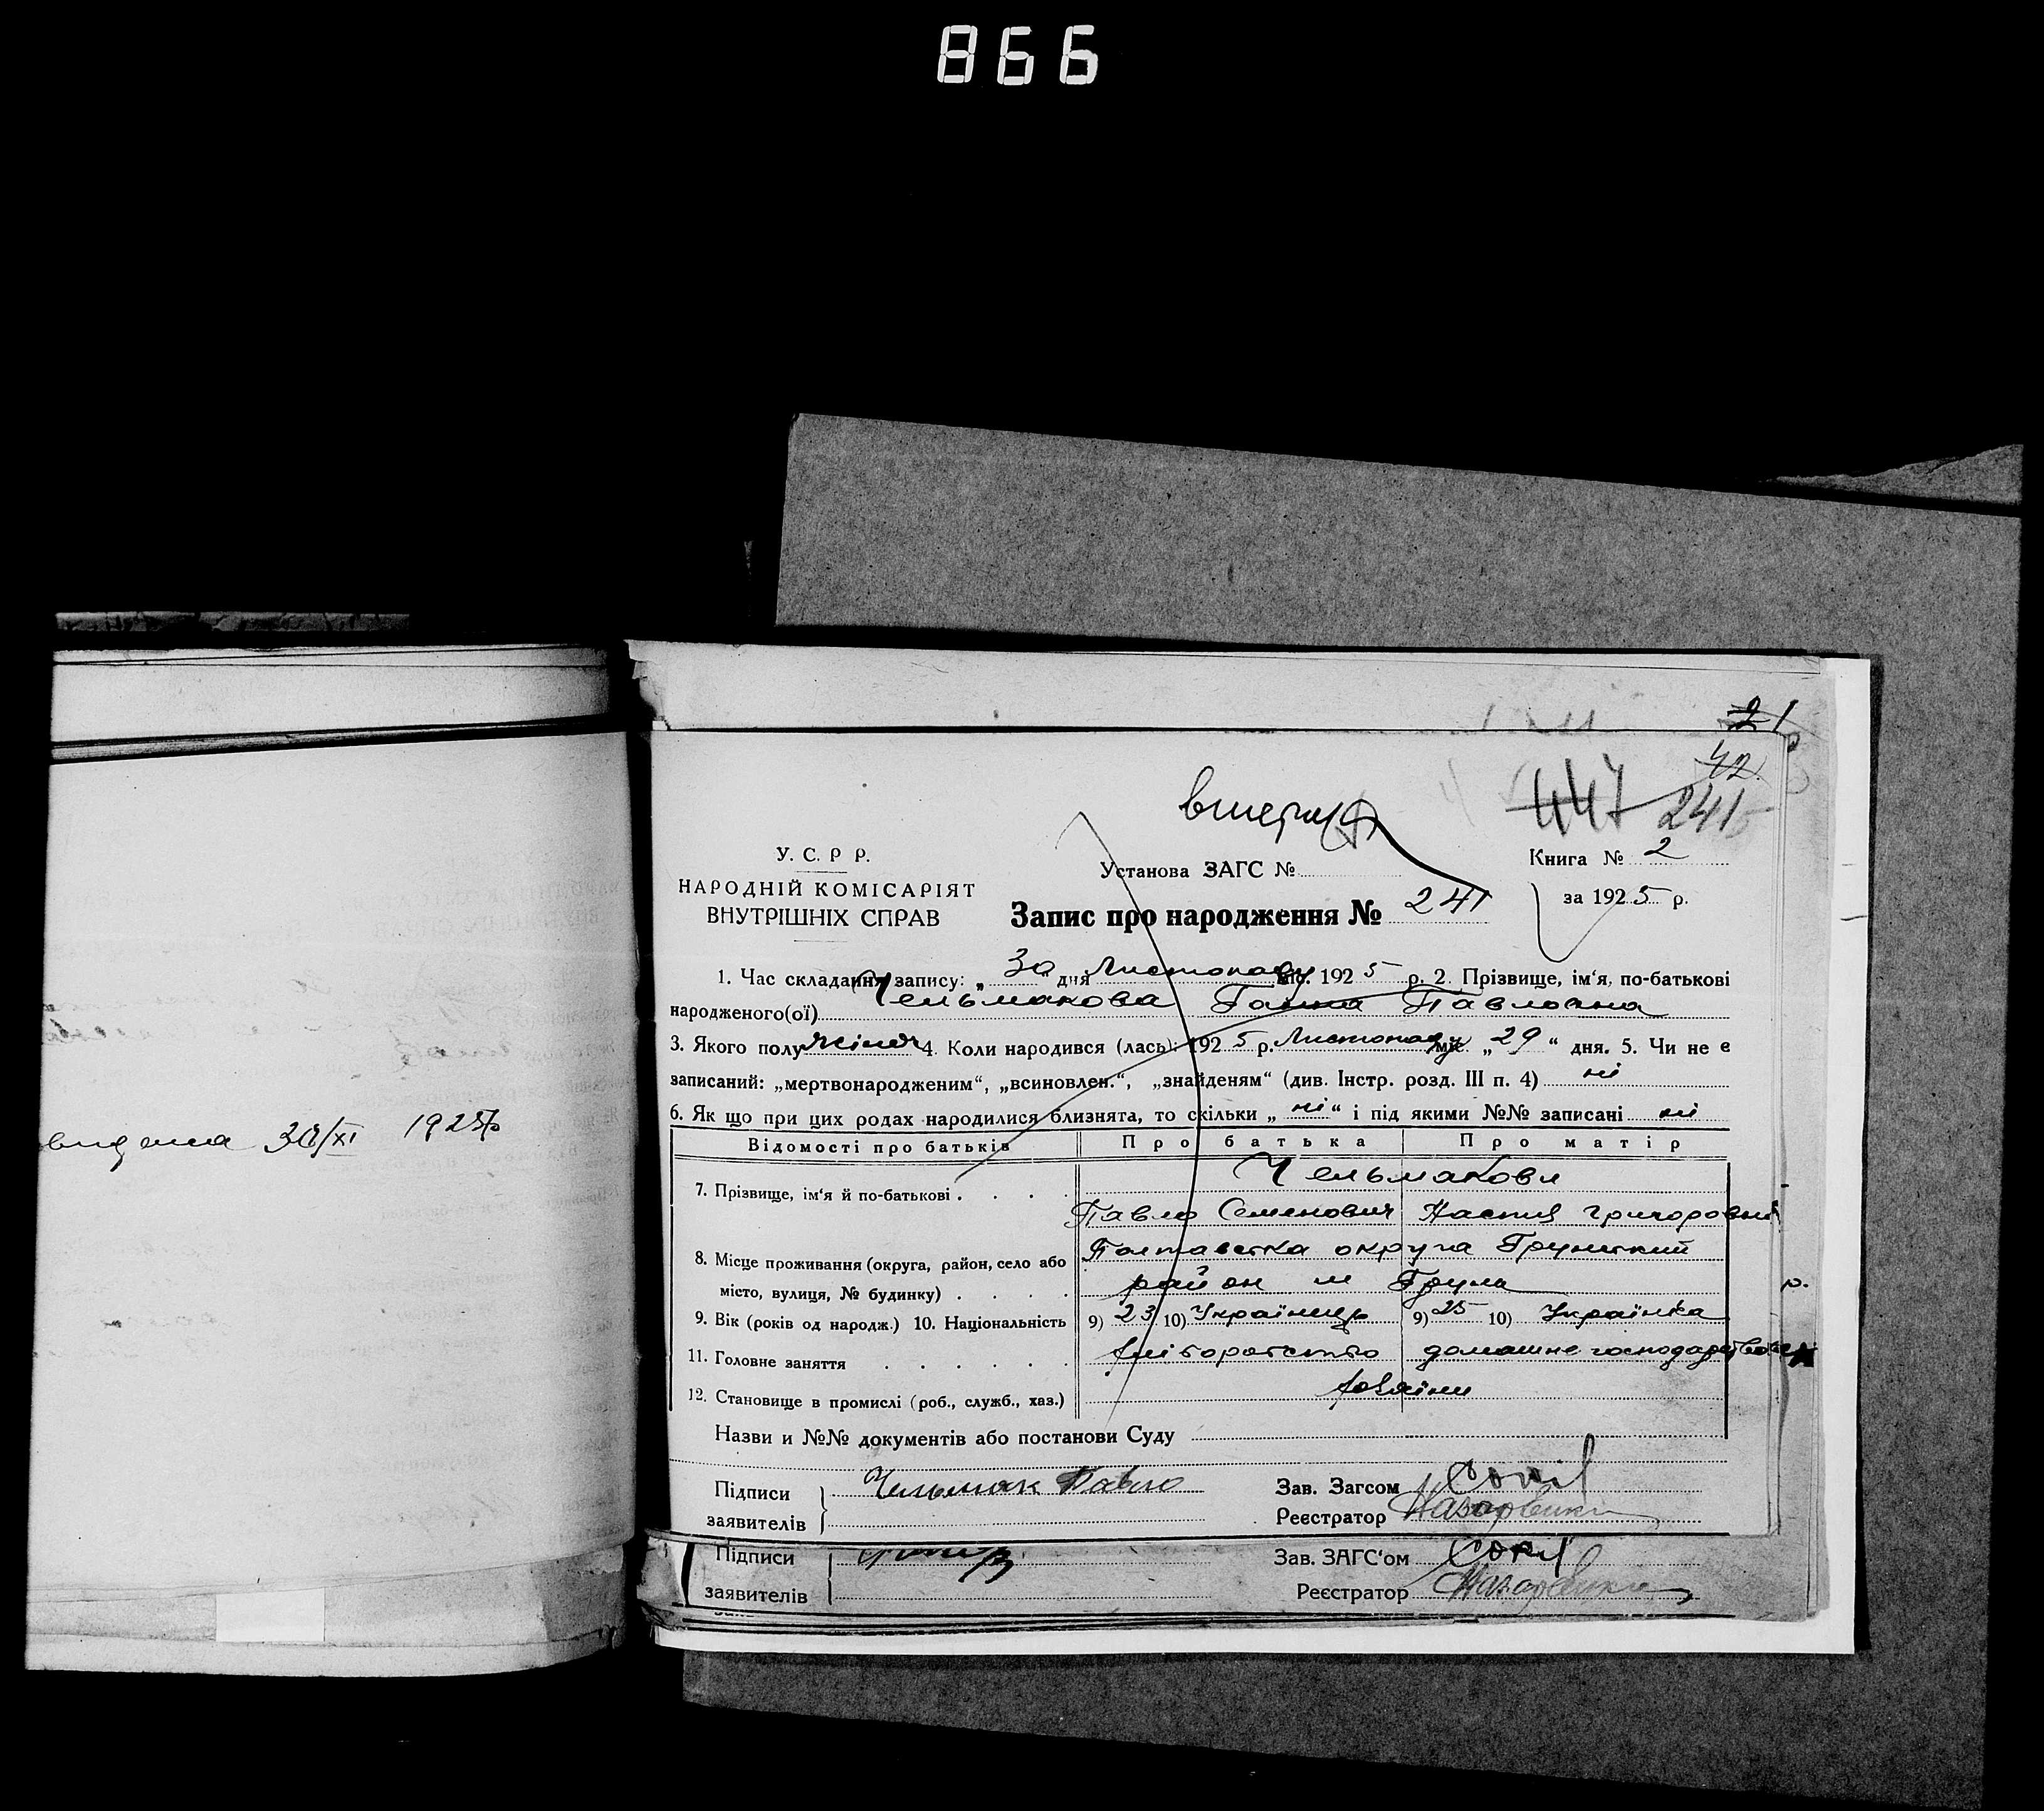 866
21
42
447 241
вмерла
У. С. Р Р.
НАРОДНІЙ КОМІСАРІЯТ
ВНУТРІШНІХ СПРАВ
Установа ЗАГС №
Запис про народження № 241
Книга № 2
за 1925 р.
1. Час складання запису: „30“ дня Листопаду міс. 1925 р. 2. Прізвище, ім‘я, по-батькові
народженого(ої) Чельмакова Ганна Павловна
3. Якого полу жіноч 4. Коли народився (лась): 1925 р. Листопаду міс. „29“ дня. 5. Чи не є
записаний: „мертвонародженим“, „всиновлен.“, „знайденям“ (див. Інстр. розд. III п. 4) ні
6. Як що при цих родах народилися близнята, то скільки „ні“ і під якими №№ записані ні
Відомості про батьків Про батька Про матір
7. Прізвище, ім‘я й по-батькові . . . . Чельмакови
Павло Семенович Настя Григоровна
8. Місце проживання (округа, район, село або Полтавська округа Грунський
місто, вулиця, № будинку) . . . . район м Грунь
9. Вік (років од народж.) 10. Національність 9) 23 10) Українець 9) 25 10) Українка
11. Головне заняття . . . . . . хліборобство домашнє господарство
12. Становище в промислі (роб., служб., хаз.) хазяїни
Назви и №№ документів або постанови Суду
Підписи Чельмак Павло
заявителів
Зав. Загсом Сокіл
Реєстратор Назаренко
Підписи
заявителів
Зав. ЗАГС‘ом Сокіл
Реєстратор Назаренко
видана 30/XI 1925 р.